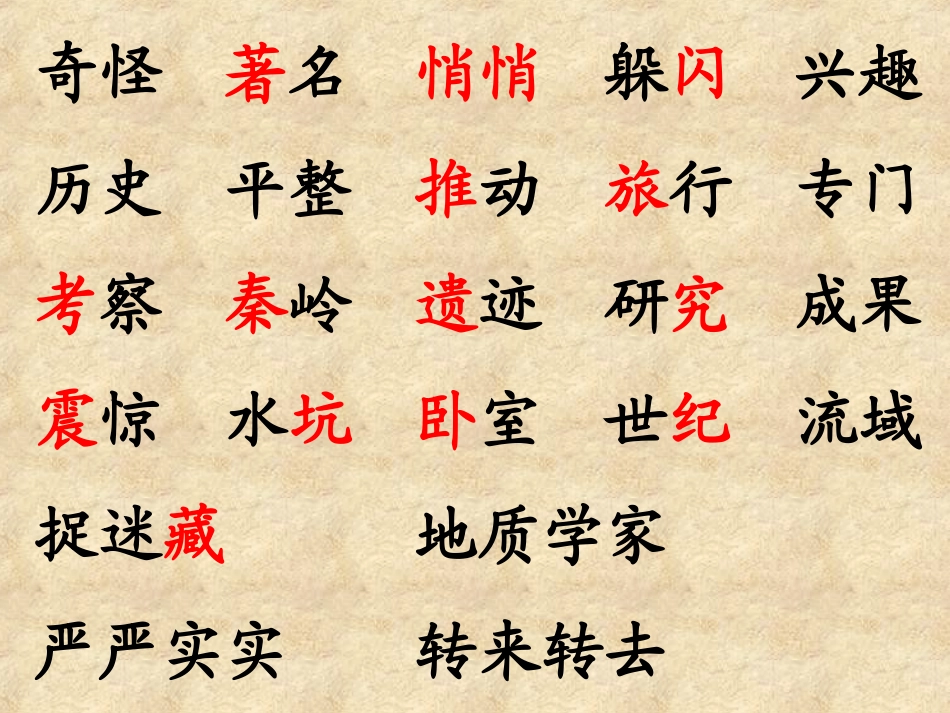 奇怪 著名 悄悄 躲闪 兴趣
历史 平整 推动 旅行 专门
考察 秦岭 遗迹 研究 成果
震惊 水坑 卧室 世纪 流域
捉迷藏 地质学家
严严实实 转来转去